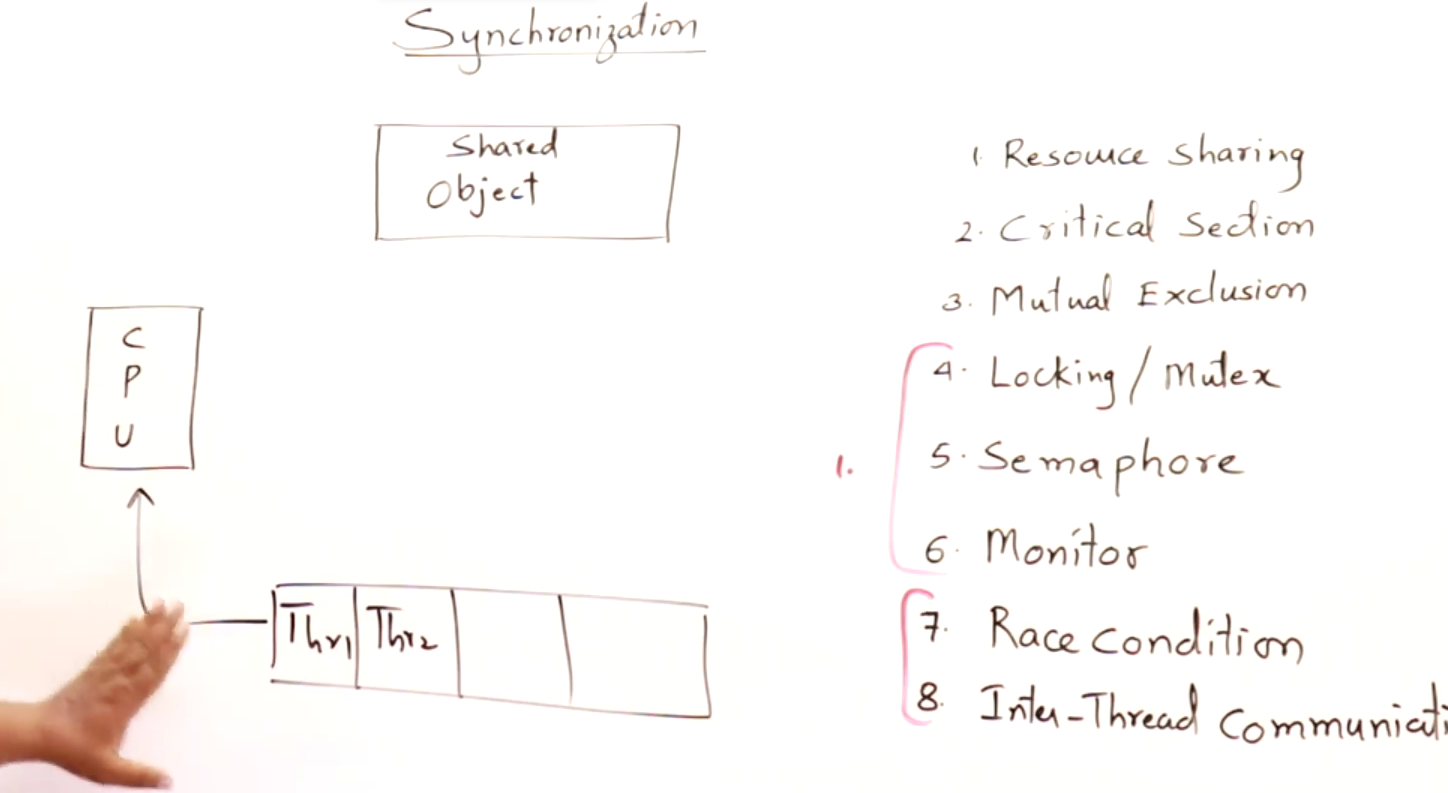 Synchronization
Shared
Object
C
P
U
Thr1 Thr2
1. Resource sharing
2. Critical Section
3. Mutual Exclusion
4. Locking / Mutex
5. Semaphore
1.
6. Monitor
7. Race condition
8. Inter-Thread Communicati